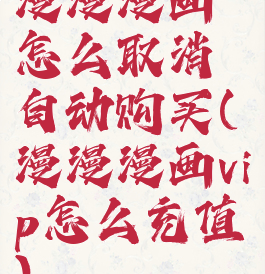 漫漫漫画
怎么取消
自动购买(
漫漫漫画vi
p怎么充值
)